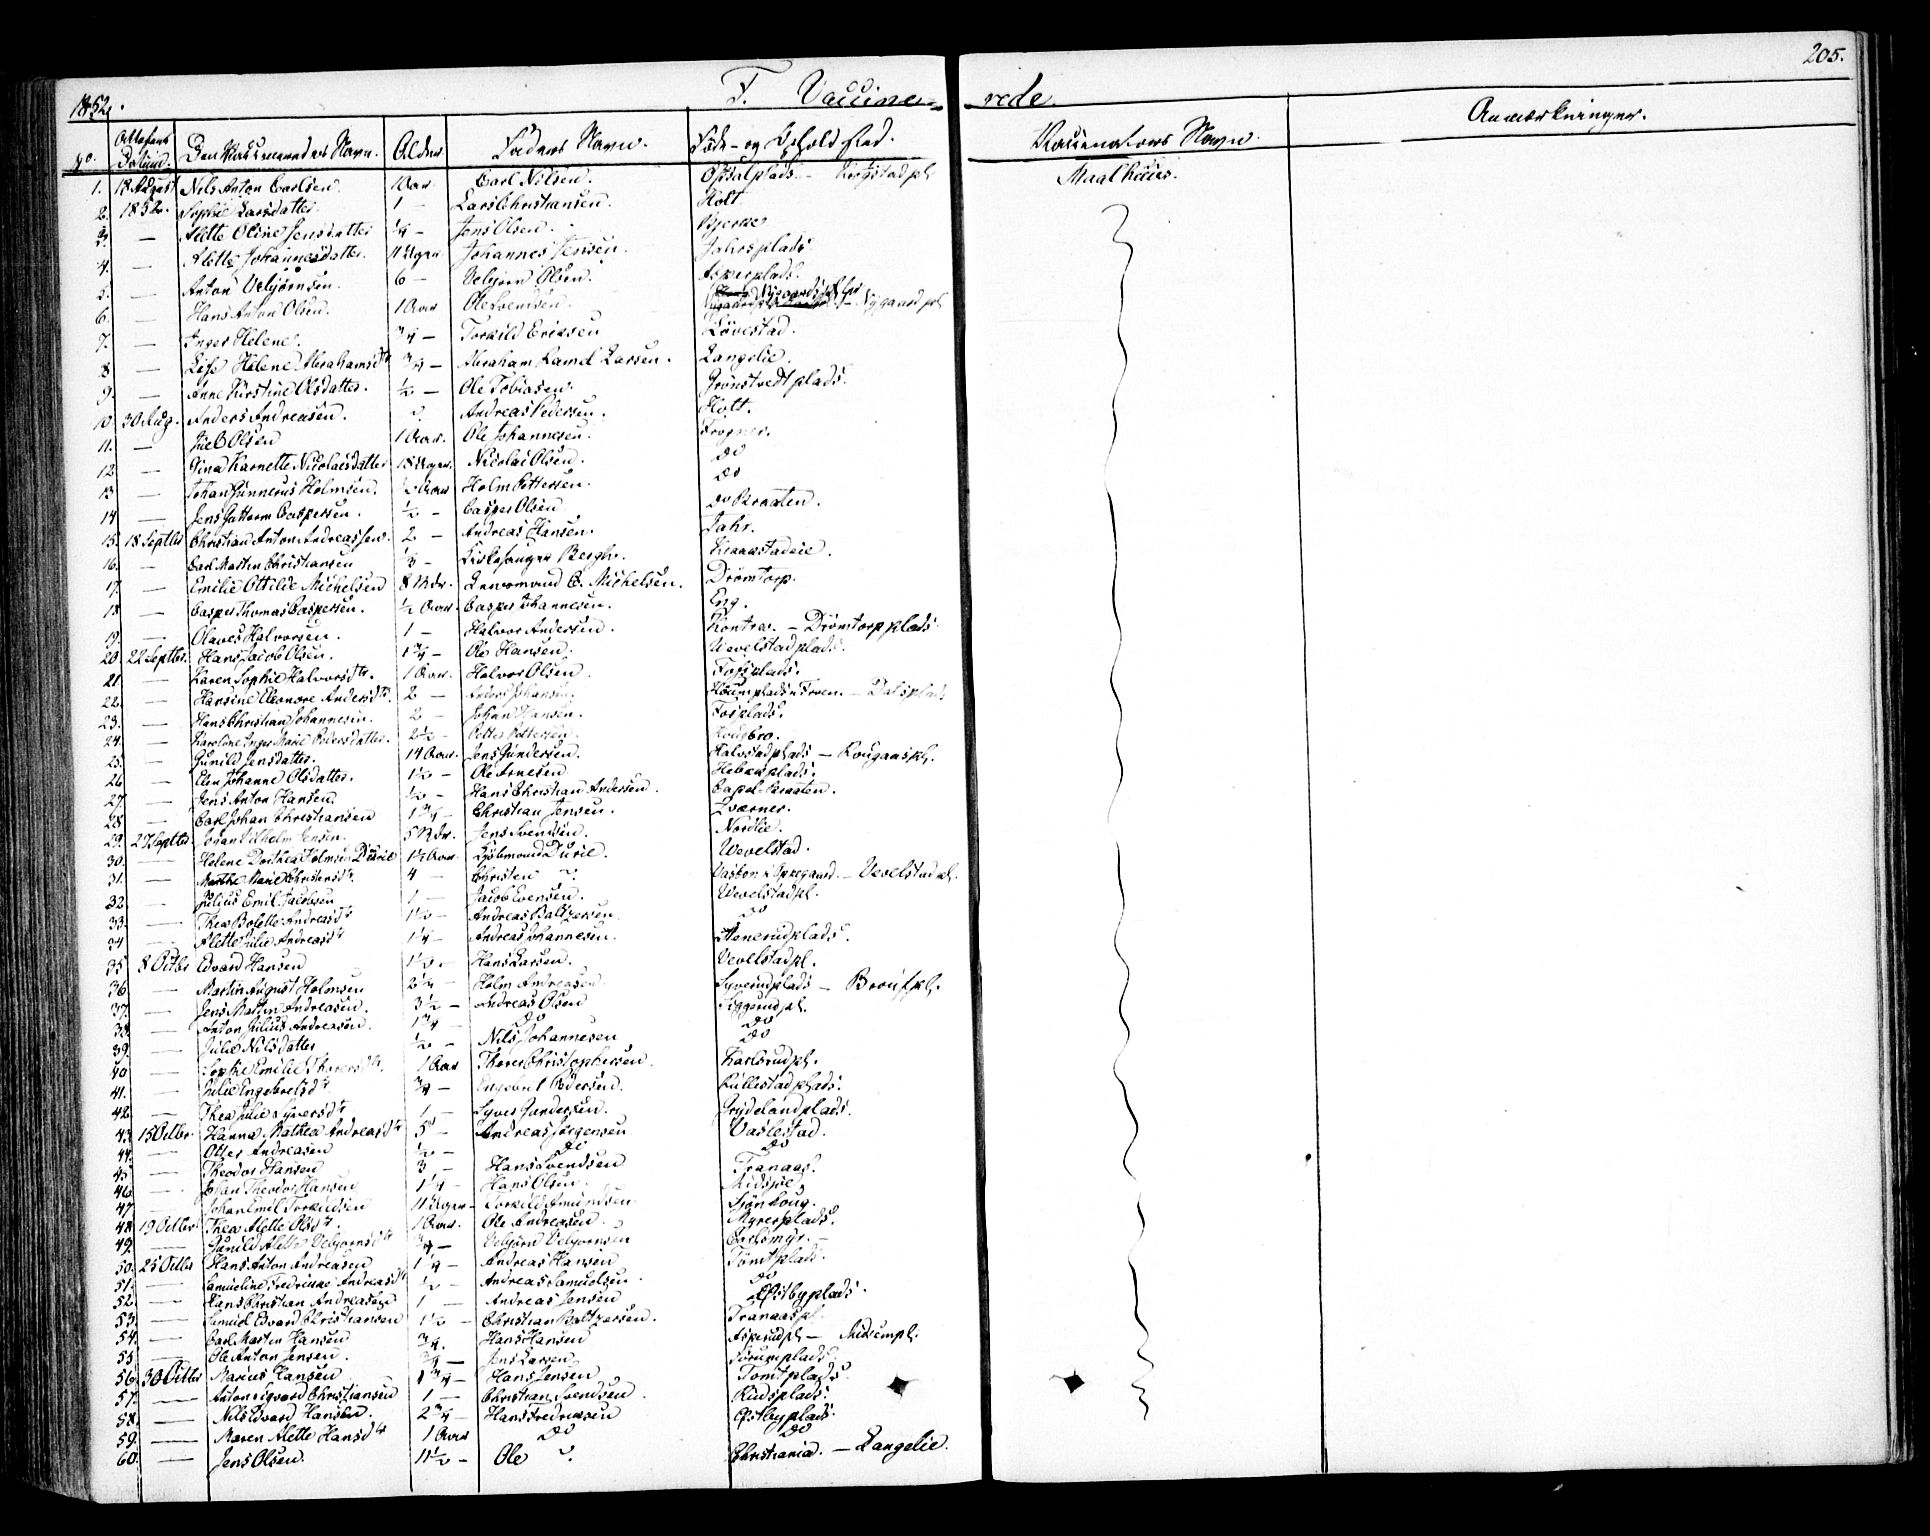 205.
1852.
F. Vaccinerede.
No. Attestens Datum. Den Vaccineredes Navn. Alder Faders Navn. Føde- og Opholdsted. Vaccinateurs Navn. Anmærkninger.
1. 18 August Nils Anton Carlsen. 1 Aar. Carl Nilsen. Opsalplads - Maalhuus.
2. 1852. Sophie Larsdatter. 1 - Lars Christiansen. Holt
3. — Alette Oline Jensdatter ¼ - Jens Olsen. Bjerke
4. — Alette Johannesdatter. 11 Uger Johannes Jensen. Jahrsplads
5. — Anton Vebjørnsen. 6 - Vebjørn Olsen. Asperplads.
6. — Hans Anton Olsen. 1 Aar Ole Svendsen. - Nygaard pl.
7. — Inger Helene. ¾ - Torkild Eriksen Løvestad.
8 — Lise Helene Abrahamsdtr ¾ - Abraham Kamel Larsen. Langelie.
9. — Anne Kirstine Olsdatter. ½ - Ole Tobiasen. Grønstvedtplads.
10 30 Aug. Anders Andreasen. Andreas Pedersen. Holt.
11. — Juel Olsen 1 Aar. Ole Johannesen. Frogner.
12 — Gina Karnette Nicolaisdatter 18 Uger. Nicolai Olsen. do
13 — Johan Gunnerus Holmsen. ½ Aar Holm Pettersen. do
14 — Jens Guttorm Caspersen. ½ - Casper Olsen. do Braaten.
15. 18 Septbr Christian Anton Andreassen. 2 - Andreas Hansen. Jahr.
16. — Carl Martin Christiansen ⅓ - Kirkesanger Bergh. Kraastadeie.
17. — Emilie Ottilde Michelsen 8 Mdr. Lensmand C. Michelsen. Drømtorp.
18 — Casper Thomas Caspersen. ½ Aar. Casper Johannesen. Eng.
19. — Olaves Halvorsen. 1 - Halvor Andersen. Kontra. - Drømtorpplads
20. 22 Septbr. Hans Jacob Olsen. 1¾ - Ole Hansen. Vevelstadplads.
21 — Karen Sophie Halvorsdtr. 1 Aar. Halvor Olsen. Fossplads.
22. — Hansine Eleonore Andersdtr. 2 - Anders Johansen. Houmplads i Froen. - Dalsplads
23. — Hans Christian Johannesen. 2 - Johan Hansen. Fosplads.
24. — Karoline Inger Marie Pedersdatter. 2½ - Petter Pettersen. Hougbro.
25. — Gunild Jensdatter. 14 Aar. Jens Gundersen. Halvstadplads - Kougaaspl.
26 — Elen Johanne Olsdatter. 1½ - Ole Arnesen Hebekplads.
27. — Jens Anton Hansen. ½ - Hans Christian Andersen. Capel-Braaten.
28 — Carl Johan Christiansen 1¾ - Christian Jensen. Qværner.
29. 27 Septbr. Johan Vilhelm Jensen. 5 Mdr. Jens Svendsen. Nordlie.
30. — Helene Dorthea Holmsen Durie 1½ Aar. Kjøbmand Durie. Vevelstad.
31. — Marthe Marie Christensdtr. 4 - Christen Vasbon i Opegaard. - Vevelstad pl.
32. — Julius Emil Jacobsen 1 - Jacob Evensen. Vevelstad pl.
33. — Thea Bolette Andreasdtr 1½ - Andreas Baltzersen. do
34 — Alette Julie Andreasdtr 1¼ - Andreas Johannesen. Stenerudplads.
35 8 Octbr Edvard Hansen 1½ - Hans Larsen. Vevelstad pl.
36. — Martin August Holmsen 2¼ - Holm Andreasen. Syverudplads -
37. — Jens Martin Andreasen. 3½ - Andreas Olsen Siggerud pl.
38. — Anton Julius Andreasen. 1¾ - do do
39. — Julie Nilsdatter ½ - Nils Johannesen do
40 — Sophie Emilie Thoresdtr. 1 Aar Thore Christophersen. Karlsrud pl.
41. — Julie Engebretsdtr ¾ - Engebret Pedersen. Kullestadplads.
42. — Thea Julie Syversdtr 1 - Syver Gundersen. Grydelandplads.
43 15 Octbr. Hanna Mathea Andreasdtr 5 - Andreas Jørgensen Vaslestad.
44. — Otter Andreasen ½ - do do
45 — Theodor Hansen 3 - Hans Svendsen Tranaas.
46 — Johan Theodor Hansen 1¼ - Hans Olsen. Midsjøe
47. — Johan Emil Torkildsen 11 Uger - Torkild Amundsen.
48. 19 Octbr Thea Alette Olsdtr. 1 Aar. Ole Andreasen. Myrerplads.
49. — Gunild Alette Vebjørnsdtr ¾ - Vebjørn Vebjørnsen
50. 25 Octbr Hans Anton Andreasen 1¼ - Andreas Hansen Tomtplads.
51. — Samueline Fredrikke Andreasdtr ½ - Andreas Samuelsen do
52. — Hans Christian Andreasen 1 - Andreas Jensen Østbyplads.
53. — Samuel Edvard Christiansen 1½ - Christian Baltzersen. Tranaaspl.
54. — Carl Martin Hansen ¾. Hans Hansen Asperud pl - Midsempl.
55 — Ole Anton Jensen. ¾ - Jens Larsen
56. 30 Octbr Marius Hansen 1¾ - Hans Jensen Tomtplads.
57. — Anton Sigvard Christiansen 1 - Christian Svendsen. Rudsplads.
58. — Nils Edvard Hansen. 2¾ - Hans Fredriksen Østbyplads.
59. — Maren Alette Hansdtr 1 Aar do do
60. — Jens Olsen. 11½ - Ole Christiania. - Langelie.